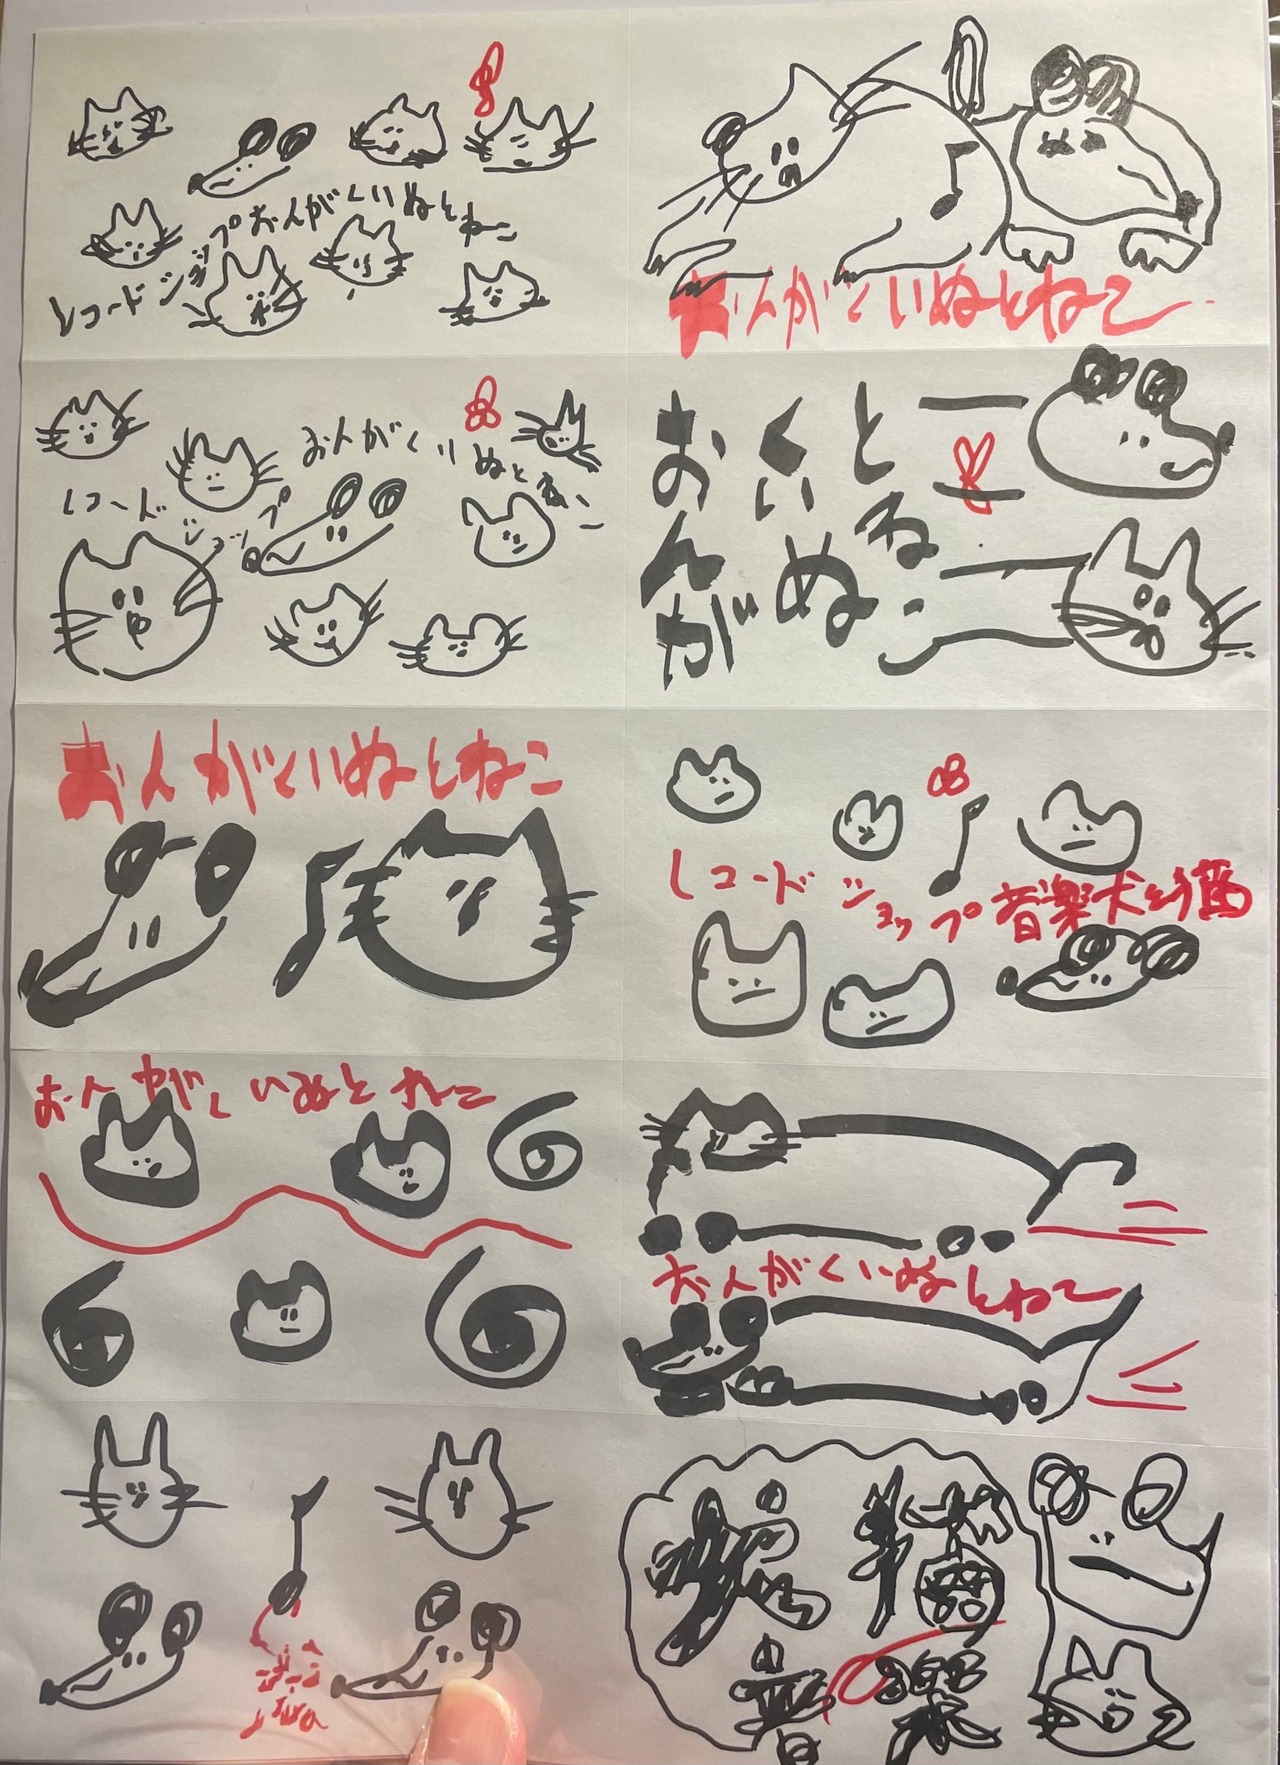 レコードショップおんがくいぬとねこ
おんがくいぬとねこ
おんがくいぬとねこ
レコードショップ
おんがくいぬとねこ
おんがくいぬとねこ
レコードショップ音楽犬と猫
おんがくいぬとねこ
おんがくいぬとねこ
犬 猫
音楽